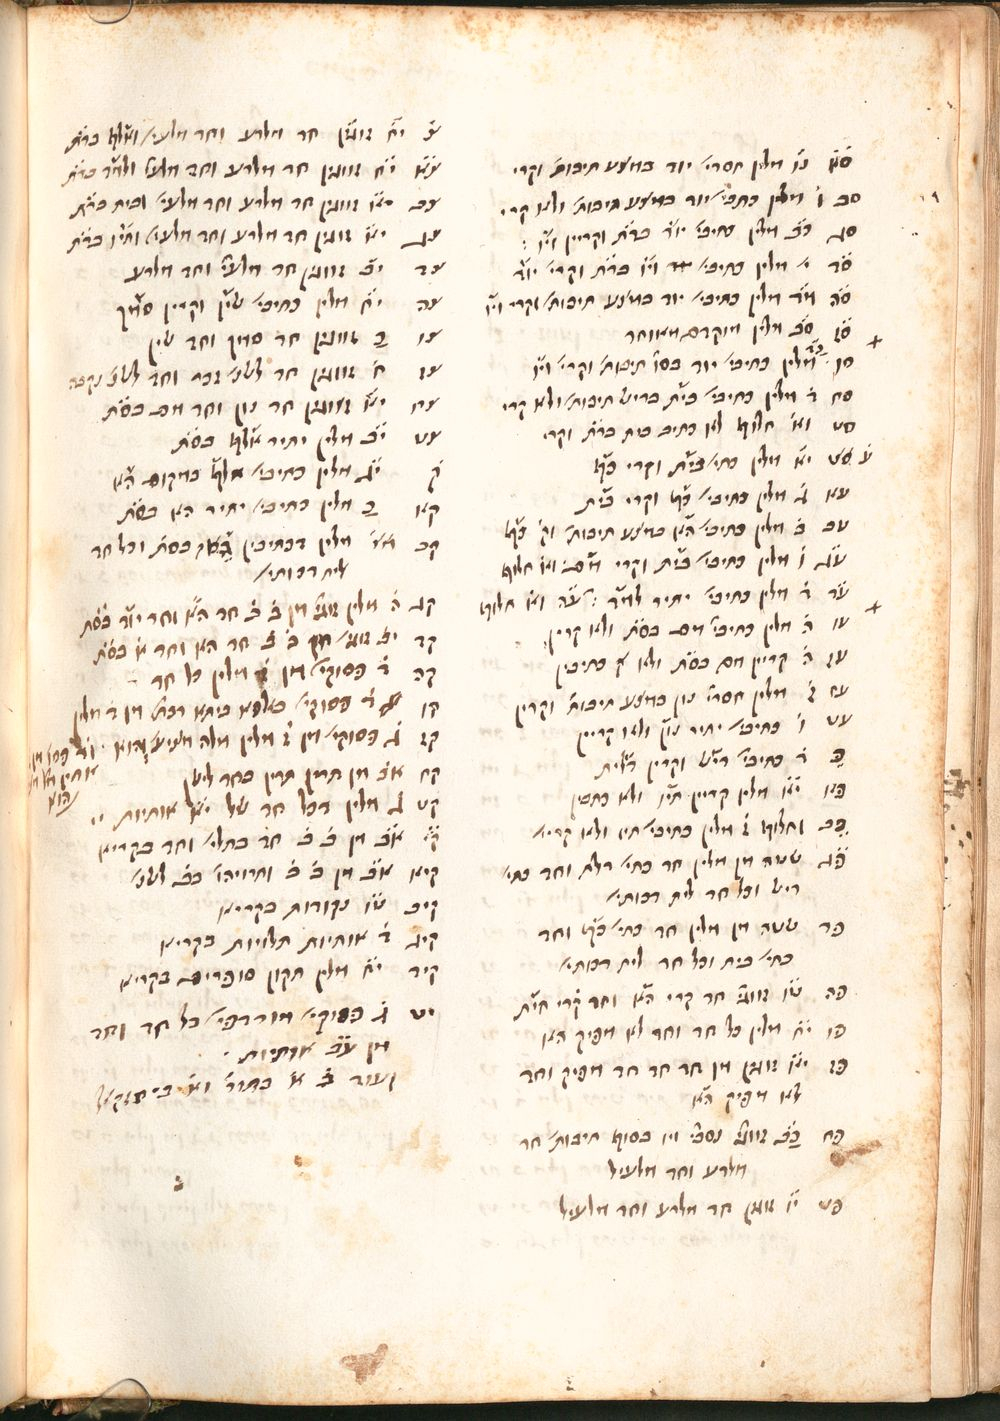 סא נו מלין חסרי׳ יוד במצע תיבות׳ וקרי
סב ו׳ מלין כתבי׳ יוד במצע תיבות׳ ולא קרי
סג כב מלין כתיבי׳ יוד ברת וקריין ויו :
סד י׳ מלין כתיבי׳ ויו ברת וקרי׳ יוד
סה מלין כתיבי׳ יוד במצע תיבות׳ וקרי ויו
סז סב מלין מוקדם מאוחר
מלין כתיבי׳ יוד בסו׳ תיבות׳ וקרי׳ ויו
סח ד מלין כתיבי׳ בית בריש תיבות׳ ולא קרי
סט וא׳ חלוף לא כתיב בית ברת וקרי
יא מלין כתי׳ בית וקרי כף
עא ג מלין כתיבי׳ כף וקרי בית
עב ב מלין כתיבי׳ הא במצע תיבות׳ וק׳ כף
עג ו מלין כתיבי׳ בית וקרי מם וא׳ חלוף
עד ד מלין כתיבי׳ יתיר למד : עה וא׳ חלוף
עו ה מלין כתיבי׳ מם בסת ולא קריין
עז ה׳ קריין מם בסת ולא כתיבין
עח מלין חסרי׳ נון במצע תיבות׳ וקריין
עט ו׳ כתיבי׳ יתיר נון ולא קריין
פ ד כתיבי׳ ריש וקריין דלית
פא יא מלין קריין תיו ולא כתבין
פב וחלוף ג מלין כתיבי׳ תיו ולא קריי׳
פג ששה מן מלין חד כתי׳ דלת וחד כתי׳
ריש וכל חד לית דכותי׳
פד ששה מן מלין חד כתי׳ כף וחד
כתי׳ בית וכל חד לית דכותי׳
פה זוגי׳ חד קרי הא וחד קרי חית
פו יח מלין כל חד וחד לא מפיק הא
פז יא זוגין מן חד חד חד מפיק וחד
לא מפיק הא
פח כב זוגי׳ נסבי׳ ויו בסוף תיבות׳ חד
מלרע וחד מלעיל
פט זוגין חד מלרע וחד מלעיל
צ יח זוגין חד מלרע וחד מלעי׳ ואלף ברת
צא יח זוגין חד מלרע וחד מלעי׳ ולמד ברת
צב יא זוגין חד מלרע וחד מלעי׳ ובית ברת
צג יא זוגין חד מלרע וחד מלעי׳ ותיו ברת
צד יב זוגין חד מלעי׳ וחד מלרע
צה יח מלין כתיבי׳ שין וקריין סמך
צו ב זוגין חד סמך וחד שין
צז ח׳ זוגין חד לשני׳ זכר וחד לשני׳ נקבה
צח יא זוגין חד נון וחד מם בסת
צט יב מלין יתיר אלף בסת
ק יג מלין כתיבי׳ אלף במקום הא
קא ב מלין כתיבי׳ יתיר הא בסת
קב מלין דכתיבין בסת וכל חד
לית דכותי׳
קג ה מלין זוגי׳ מן ב ב חד הא וחד יוד בסת
קד יב זוגי׳ מן ב ב חד הא וחד א בסת
קה ד פסוקי׳ מן מלין כל חד
קו ד פסוקי׳ מן ד מלין
קז ג פסוקי׳ מן ג מלין מלה
קח אב מן תרין תרין בחד לישן
קט ג מלין דכל חד של יא אותיות
קי אב מן ב ב חד בתלי׳ וחד בקריא
קיא אב מן ב ב ותרויהו׳ בב לשני׳
קיב טו נקודות בקריא
קיג ד אותיות תלויות בקריא
קיד יח מלין תקון סופרים בקריא
ג פסוקי׳ כל חד וחד
מן עב אותיות
ועוד ב א בתור׳ וא׳ ביחזקאל